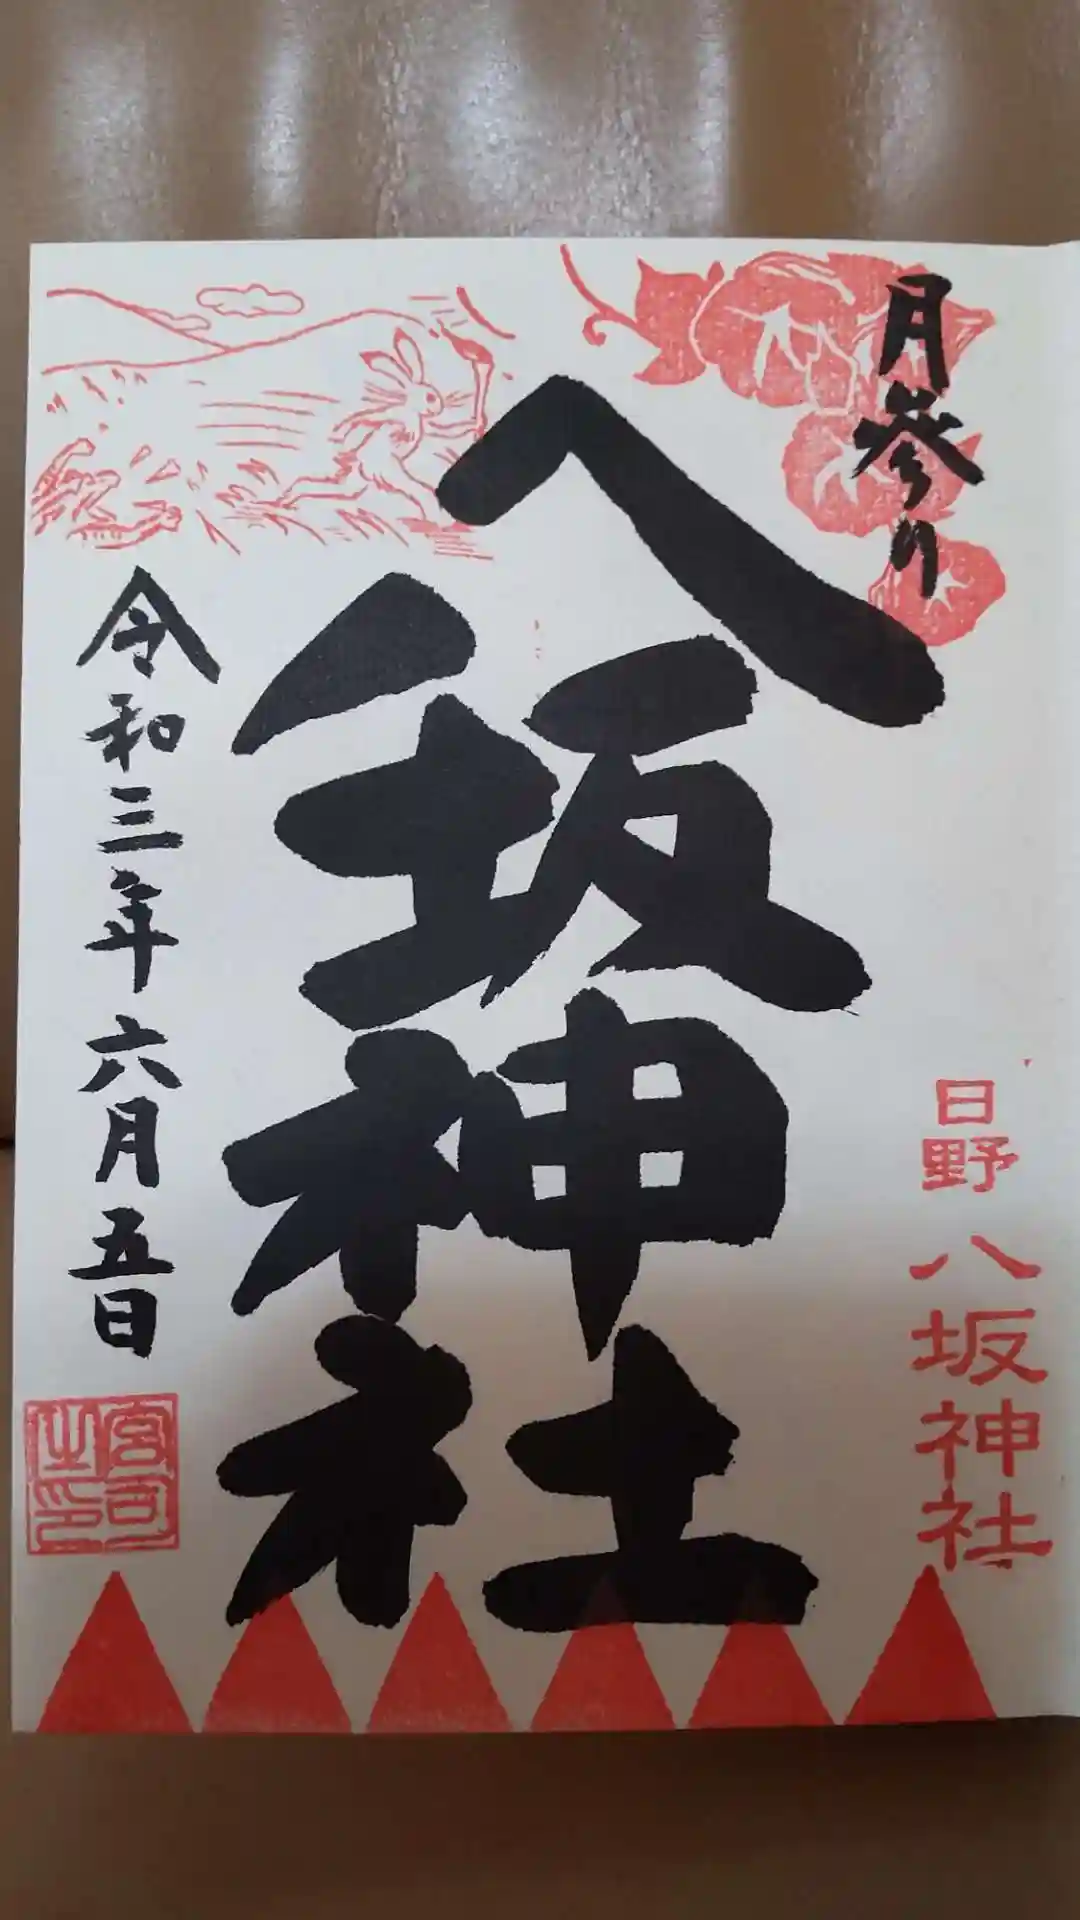 月参り
日野
八坂神社
八坂神社
令和三年六月五日
宮司之印